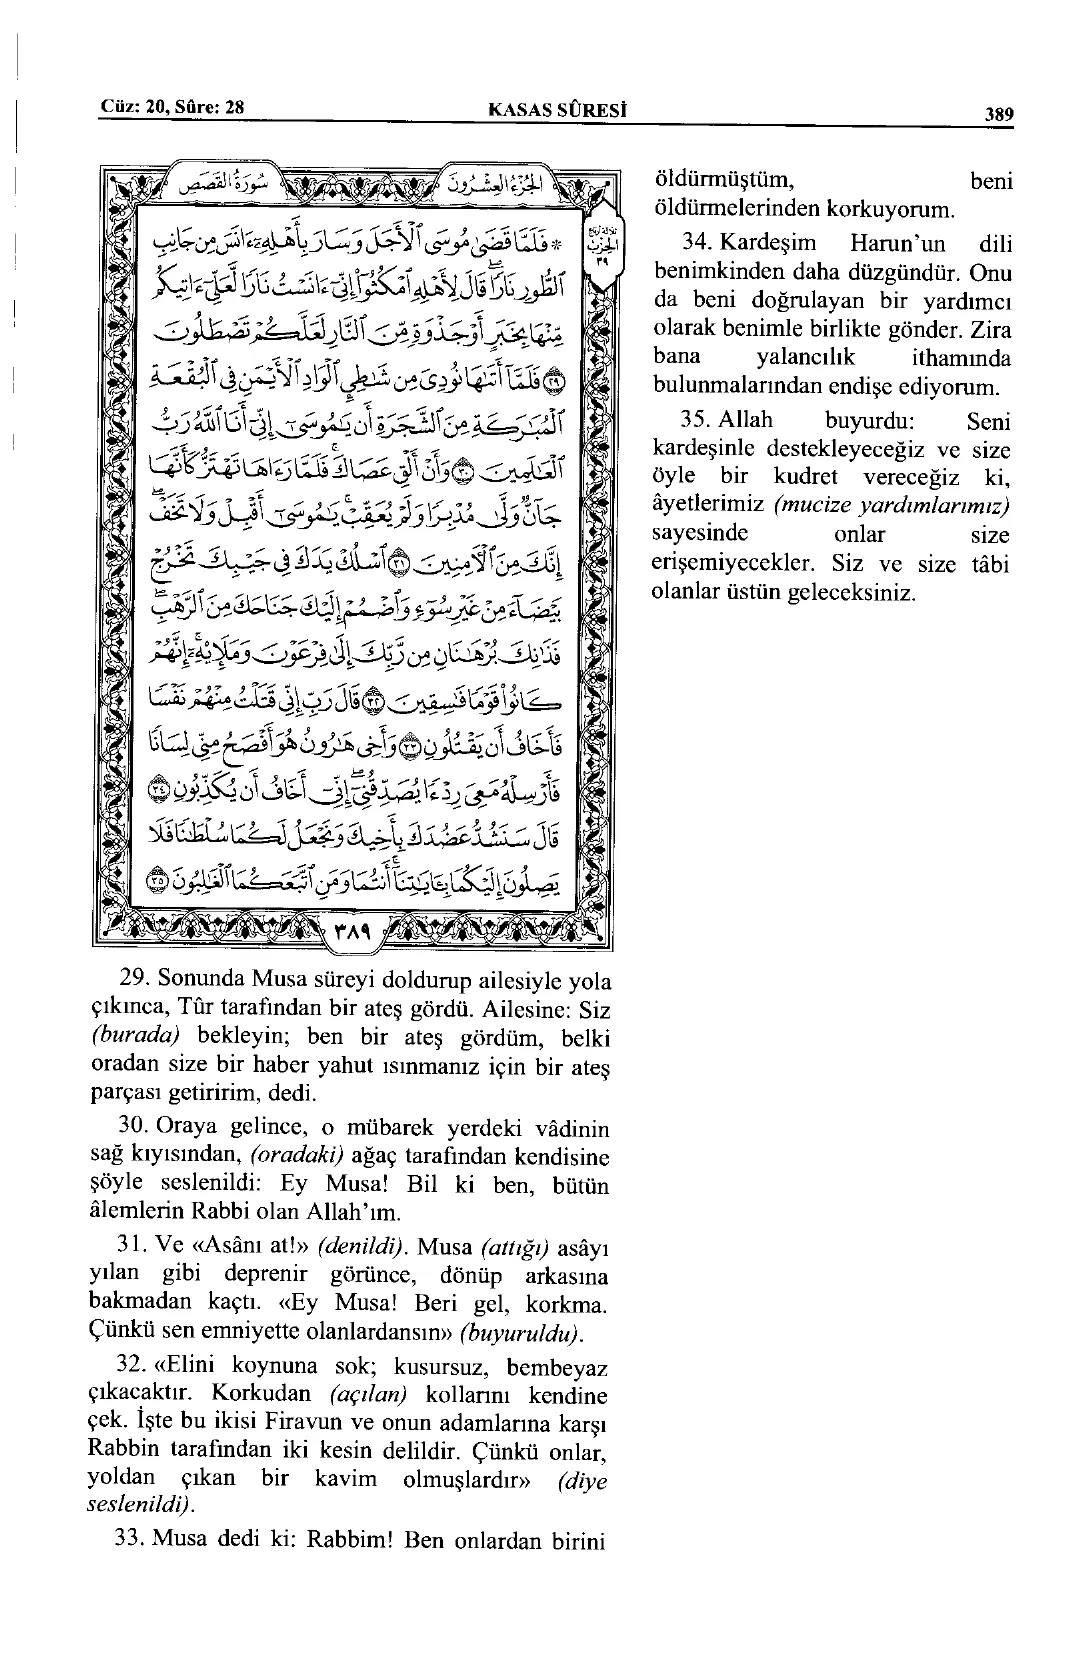 Cüz: 20, Sûre: 28 KASAS SÛRESİ 389
سُورَةُ القَصَصِ الجُزْءُ العِشْرُونَ
* فَلَمَّا قَضَىٰ مُوسَى ٱلْأَجَلَ وَسَارَ بِأَهْلِهِۦٓ ءَانَسَ مِن جَانِبِ
ٱلطُّورِ نَارًا قَالَ لِأَهْلِهِ ٱمْكُثُوٓا۟ إِنِّىٓ ءَانَسْتُ نَارًا لَّعَلِّىٓ ءَاتِيكُم
مِّنْهَا بِخَبَرٍ أَوْ جَذْوَةٍ مِّنَ ٱلنَّارِ لَعَلَّكُمْ تَصْطَلُونَ
٢٩ فَلَمَّآ أَتَىٰهَا نُودِىَ مِن شَٰطِئِ ٱلْوَادِ ٱلْأَيْمَنِ فِى ٱلْبُقْعَةِ
ٱلْمُبَٰرَكَةِ مِنَ ٱلشَّجَرَةِ أَن يَٰمُوسَىٰٓ إِنِّىٓ أَنَا ٱللَّهُ رَبُّ
ٱلْعَٰلَمِينَ ٣٠ وَأَنْ أَلْقِ عَصَاكَ فَلَمَّا رَءَاهَا تَهْتَزُّ كَأَنَّهَا
جَآنٌّ وَلَّىٰ مُدْبِرًا وَلَمْ يُعَقِّبْ يَٰمُوسَىٰٓ أَقْبِلْ وَلَا تَخَفْ
إِنَّكَ مِنَ ٱلْءَامِنِينَ ٣١ ٱسْلُكْ يَدَكَ فِى جَيْبِكَ تَخْرُجْ
بَيْضَآءَ مِنْ غَيْرِ سُوٓءٍ وَٱضْمُمْ إِلَيْكَ جَنَاحَكَ مِنَ ٱلرَّهْبِ
فَذَٰنِكَ بُرْهَٰنَانِ مِن رَّبِّكَ إِلَىٰ فِرْعَوْنَ وَمَلَإِي۟هِۦٓ إِنَّهُمْ
كَانُوا۟ قَوْمًا فَٰسِقِينَ ٣٢ قَالَ رَبِّ إِنِّى قَتَلْتُ مِنْهُمْ نَفْسًا
فَأَخَافُ أَن يَقْتُلُونِ ٣٣ وَأَخِى هَٰرُونُ هُوَ أَفْصَحُ مِنِّى لِسَانًا
فَأَرْسِلْهُ مَعِىَ رِدْءًا يُصَدِّقُنِىٓ إِنِّىٓ أَخَافُ أَن يُكَذِّبُونِ ٣٤
قَالَ سَنَشُدُّ عَضُدَكَ بِأَخِيكَ وَنَجْعَلُ لَكُمَا سُلْطَٰنًا فَلَا
يَصِلُونَ إِلَيْكُمَا بِـَٔايَٰتِنَآ أَنتُمَا وَمَنِ ٱتَّبَعَكُمَا ٱلْغَٰلِبُونَ ٣٥
الحزب
٣٩
٣٨٩
29. Sonunda Musa süreyi doldurup ailesiyle yola
çıkınca, Tûr tarafından bir ateş gördü. Ailesine: Siz
(burada) bekleyin; ben bir ateş gördüm, belki
oradan size bir haber yahut ısınmanız için bir ateş
parçası getiririm, dedi.
30. Oraya gelince, o mübarek yerdeki vâdinin
sağ kıyısından, (oradaki) ağaç tarafından kendisine
şöyle seslenildi: Ey Musa! Bil ki ben, bütün
âlemlerin Rabbi olan Allah’ım.
31. Ve «Asânı at!» (denildi). Musa (attığı) asâyı
yılan gibi deprenir görünce, dönüp arkasına
bakmadan kaçtı. «Ey Musa! Beri gel, korkma.
Çünkü sen emniyette olanlardansın» (buyuruldu).
32. «Elini koynuna sok; kusursuz, bembeyaz
çıkacaktır. Korkudan (açılan) kollarını kendine
çek. İşte bu ikisi Firavun ve onun adamlarına karşı
Rabbin tarafından iki kesin delildir. Çünkü onlar,
yoldan çıkan bir kavim olmuşlardır» (diye
seslenildi).
33. Musa dedi ki: Rabbim! Ben onlardan birini
öldürmüştüm, beni
öldürmelerinden korkuyorum.
34. Kardeşim Harun’un dili
benimkinden daha düzgündür. Onu
da beni doğrulayan bir yardımcı
olarak benimle birlikte gönder. Zira
bana yalancılık ithamında
bulunmalarından endişe ediyorum.
35. Allah buyurdu: Seni
kardeşinle destekleyeceğiz ve size
öyle bir kudret vereceğiz ki,
âyetlerimiz (mucize yardımlarımız)
sayesinde onlar size
erişemiyecekler. Siz ve size tâbi
olanlar üstün geleceksiniz.